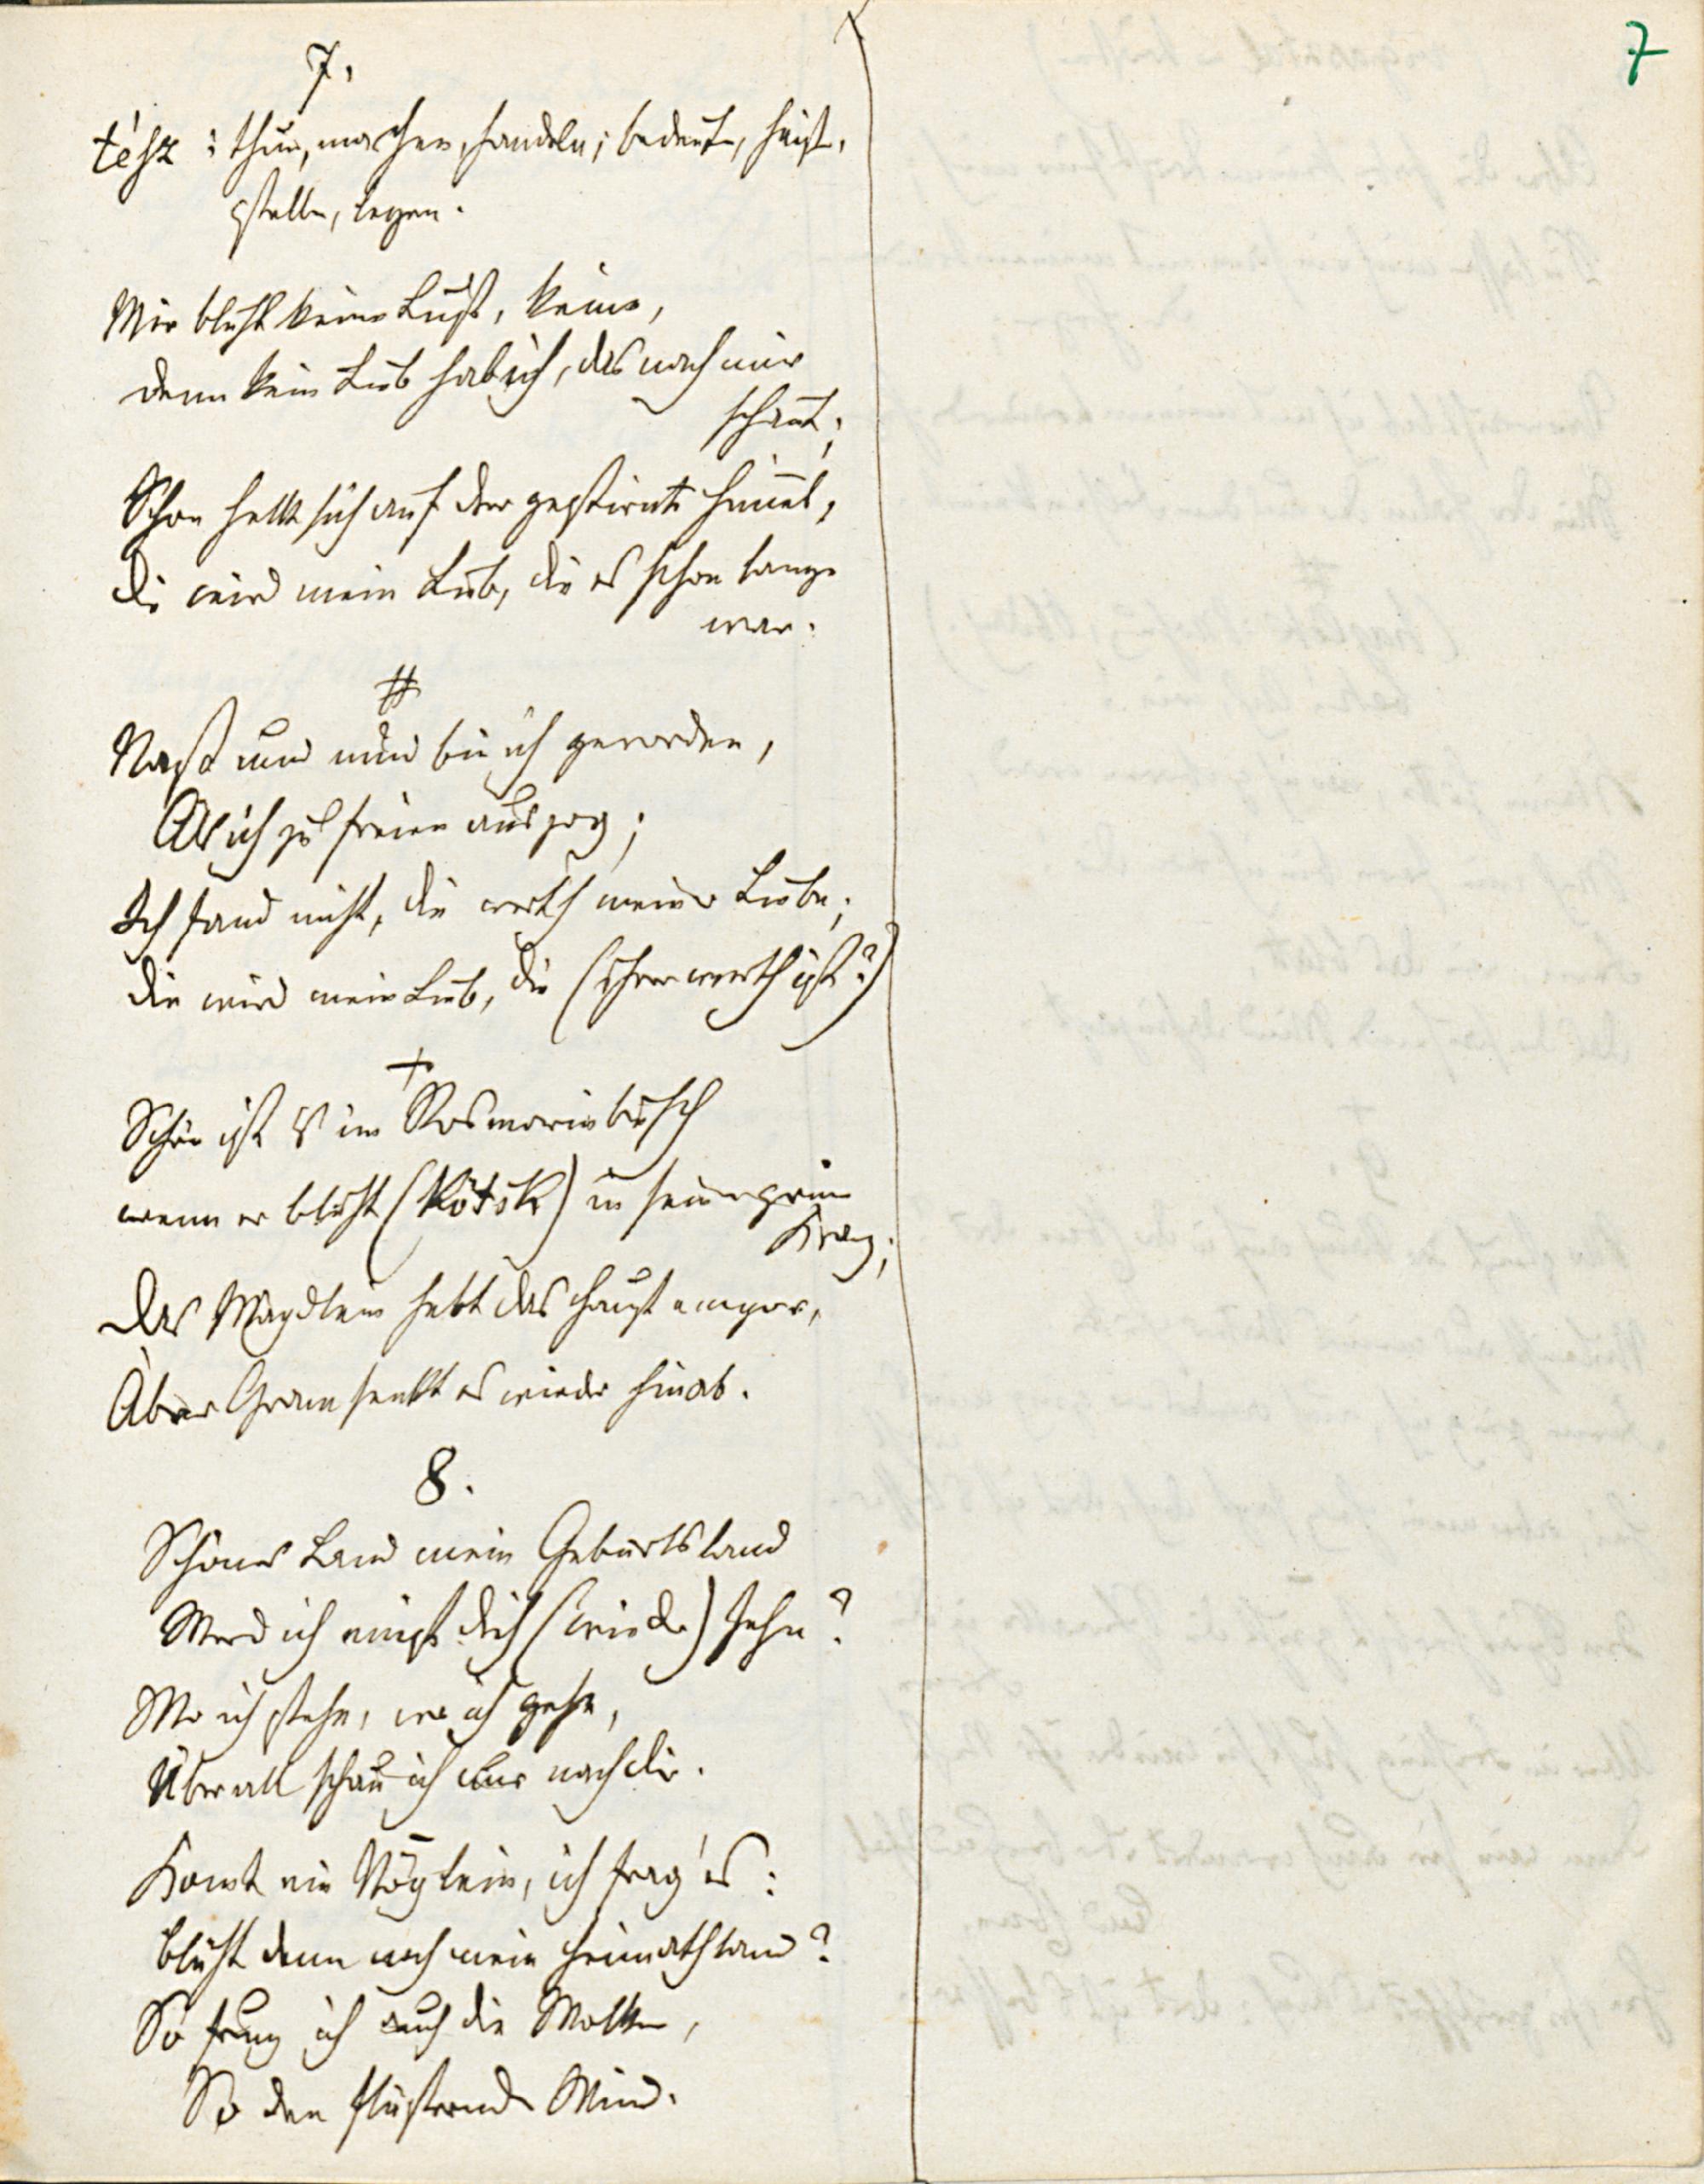 7
7.
tész : thun, machen, handeln; bedeuten, heißt,
stellen, legen.
Mir blüht keine Lust, keine,
denn kein Lieb hab ich, das nach mir
schaut;
Schon hellt sich auf der gestirnte Himmel,
die wird mein Lieb, die es schon lange
war.
#
Naß und müd bin ich geworden,
Als ich zu freien auszog;
Ich fand nicht, die werth meiner Liebe;
die wird mein Lieb, die (ihrer werth ist?)
+
Schön ist es im Rosmarinbusch
wenn er blüht (kötök) in sein grün
Kranz;
Das Mägdlein hebt das Haupt empor,
Aber Gram senkt es wieder hinab.
8.
Schönes Land mein Geburtsland
Werd ich einst dich (wieder) sehn?
Wo ich stehe, wo ich gehe,
Überall schau ich nur nach dir.
Komt ein Vöglein, ich frag' es:
blüht denn noch mein Heimathland?
So frug ich auch die Wolken,
So den flüsternden Wind.